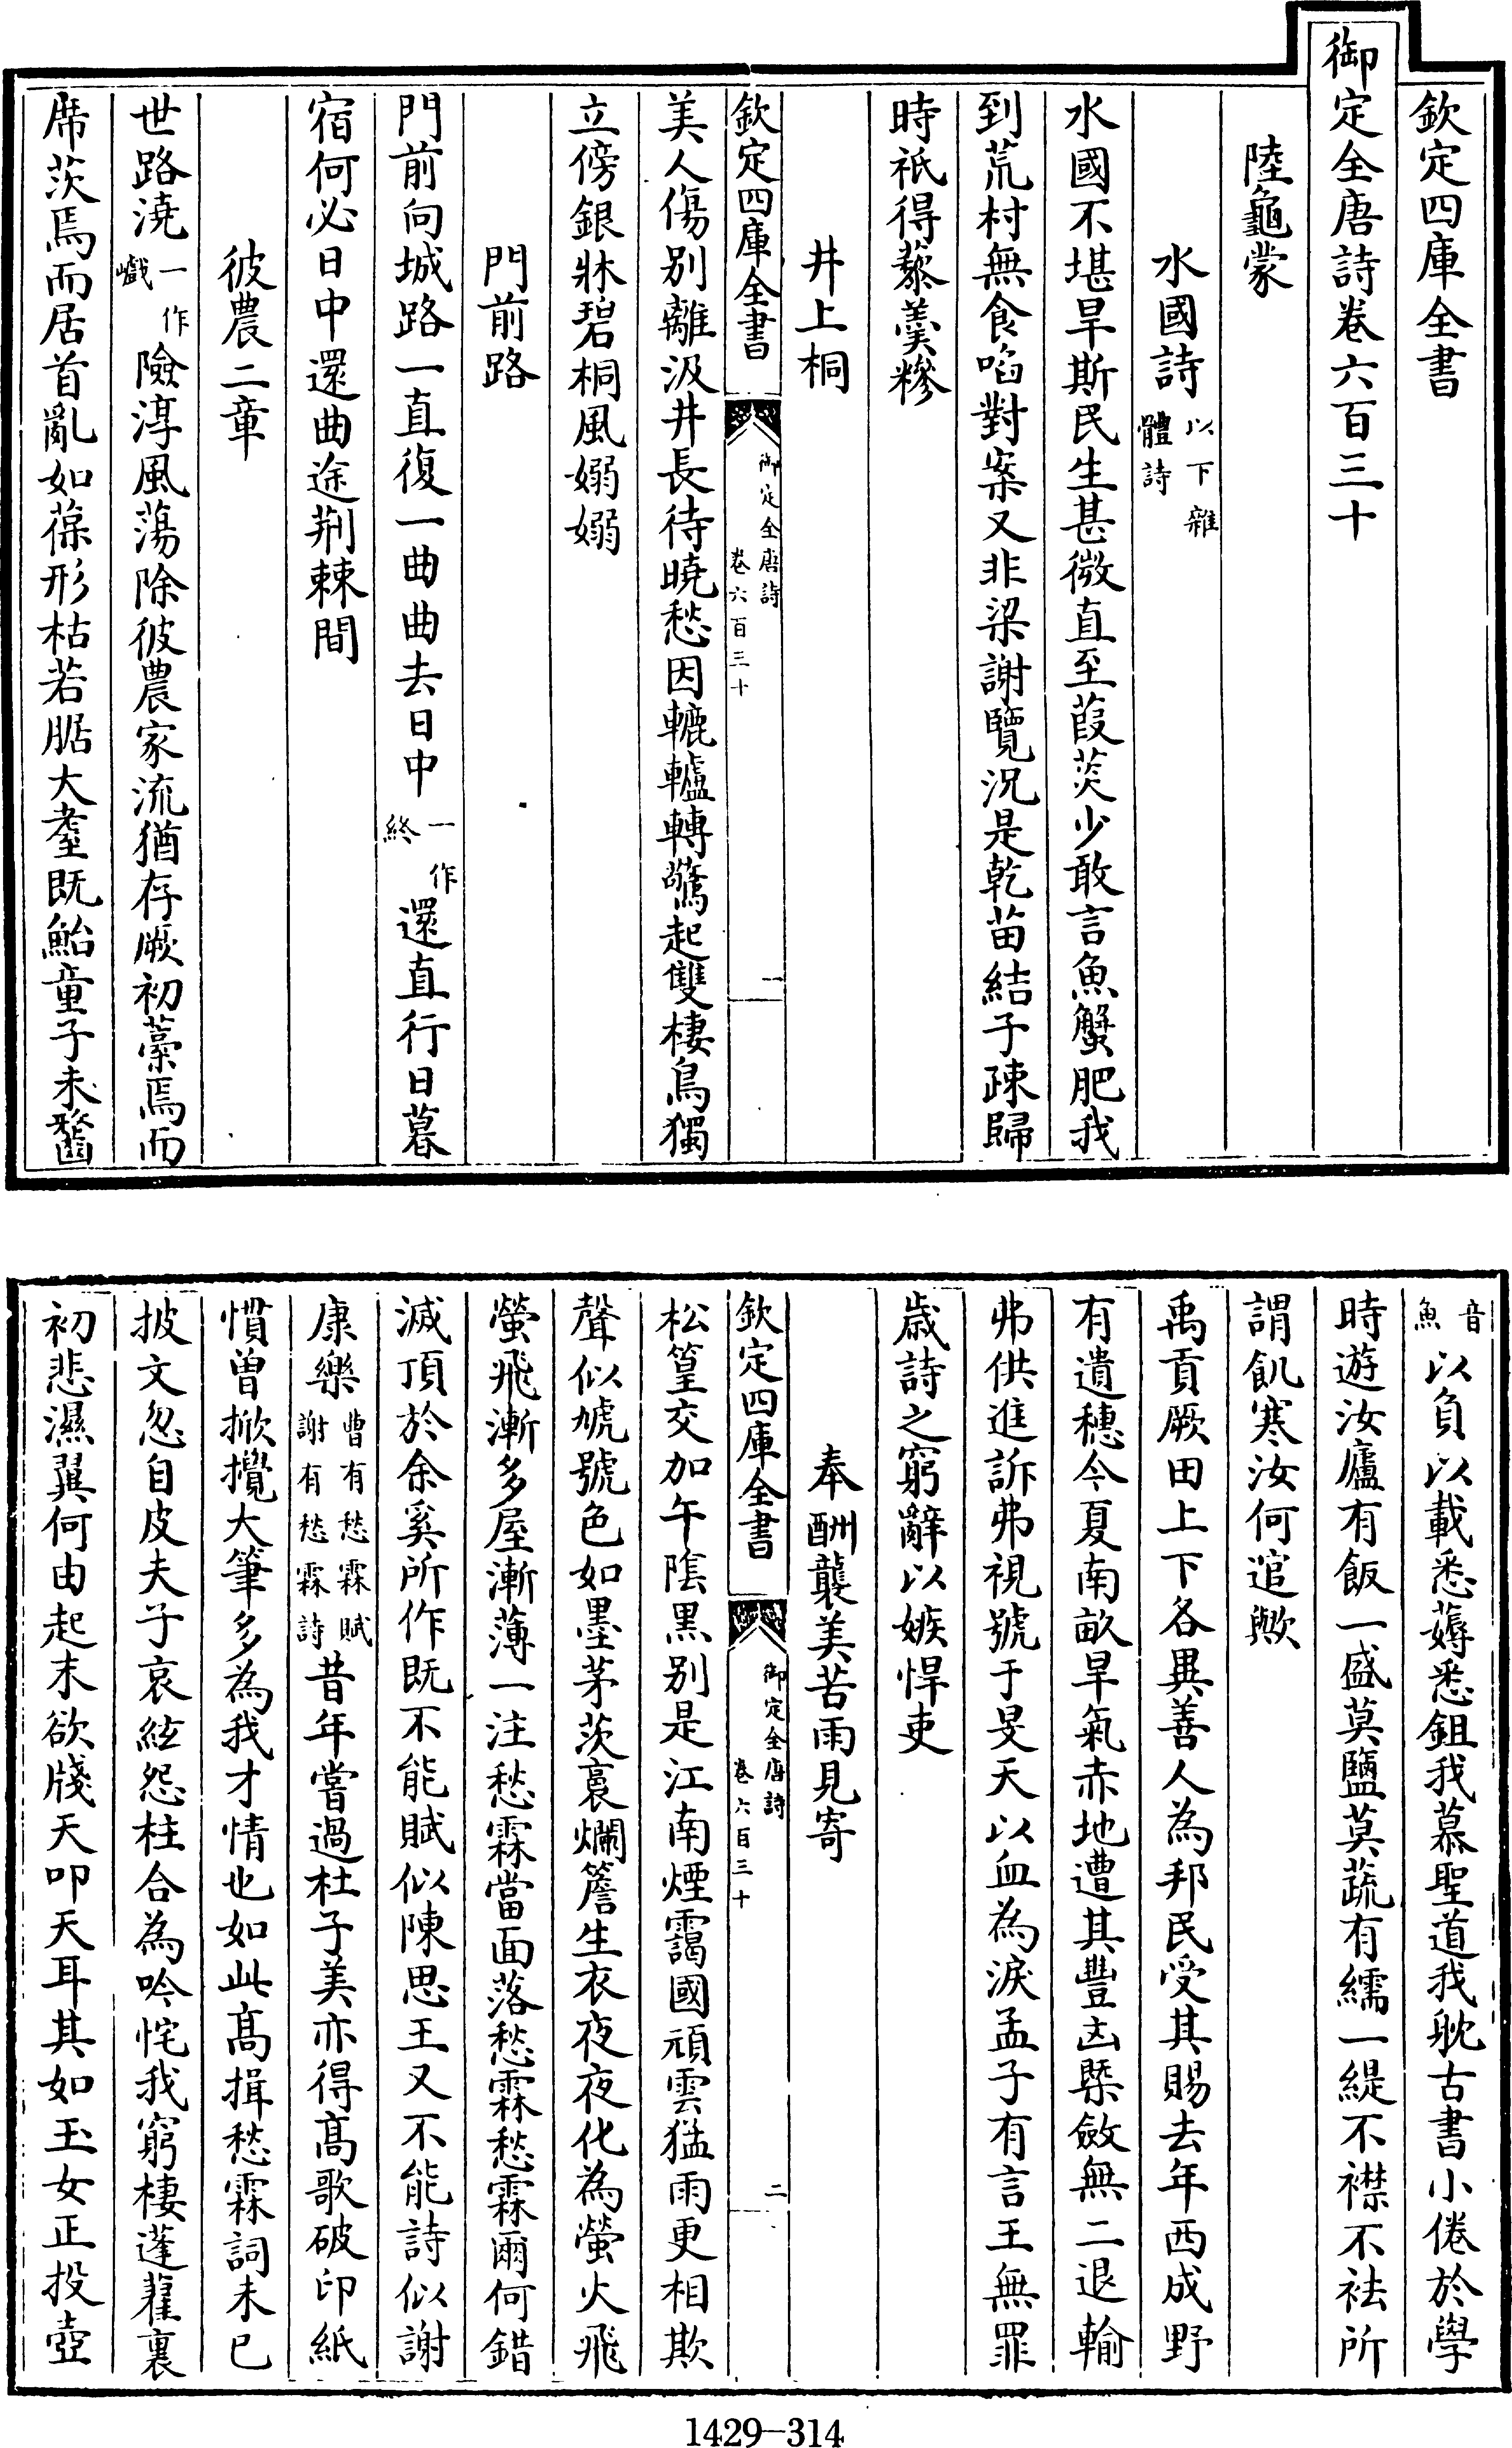 欽定四庫全書
御定全唐詩卷六百三十
陸龜蒙
水國詩以下雜體詩
水國不堪旱斯民生甚微直至葭菼少敢言魚蟹肥我
到荒村無食啗對案又非梁謝覽況是乾苗結子疎歸
時祇得藜羮糝
井上桐
欽定四庫全書 御定全唐詩卷六百三十 一
美人傷别離汲井長待曉愁因轆轤轉驚起雙棲鳥獨
立傍銀牀碧桐風嫋嫋
門前路
門前向城路一直復一曲曲去日中一作終還直行日暮
宿何必日中還曲途荆棘間
彼農二章
世路澆一作巇險淳風蕩除彼農家流猶存厥初藁焉而
席茨焉而居首亂如葆形枯若腒大耋既鮐童子未齾
音魚以負以載悉薅悉鉏我慕聖道我耽古書小倦於學
時遊汝廬有飯一盛莫鹽莫蔬有繻一緹不襟不祛所
謂飢寒汝何逭歟
禹貢厥田上下各異善人為邦民受其賜去年西成野
有遺穗今夏南畝旱氣赤地遭其豐凶槩斂無二退輸
弗供進訴弗視號于旻天以血為淚孟子有言王無罪
歲詩之窮辭以嫉悍吏
奉酬襲美苦雨見寄
欽定四庫全書 御定全唐詩卷六百三十 二
松篁交加午陰黑别是江南煙靄國頑雲猛雨更相欺
聲似虓號色如墨茅茨裛爛簷生衣夜夜化為螢火飛
螢飛漸多屋漸薄一注愁霖當面落愁霖愁霖爾何錯
滅頂於余奚所作既不能賦似陳思王又不能詩似謝
康樂曹有愁霖賦謝有愁霖詩昔年嘗過杜子美亦得高歌破印紙
慣曾掀攪大筆多為我才情也如此高揖愁霖詞未已
披文忽自皮夫子哀絃怨柱合為吟恠我窮棲蓬藋裏
初悲濕翼何由起末欲牋天叩天耳其如玉女正投壺
1429-314